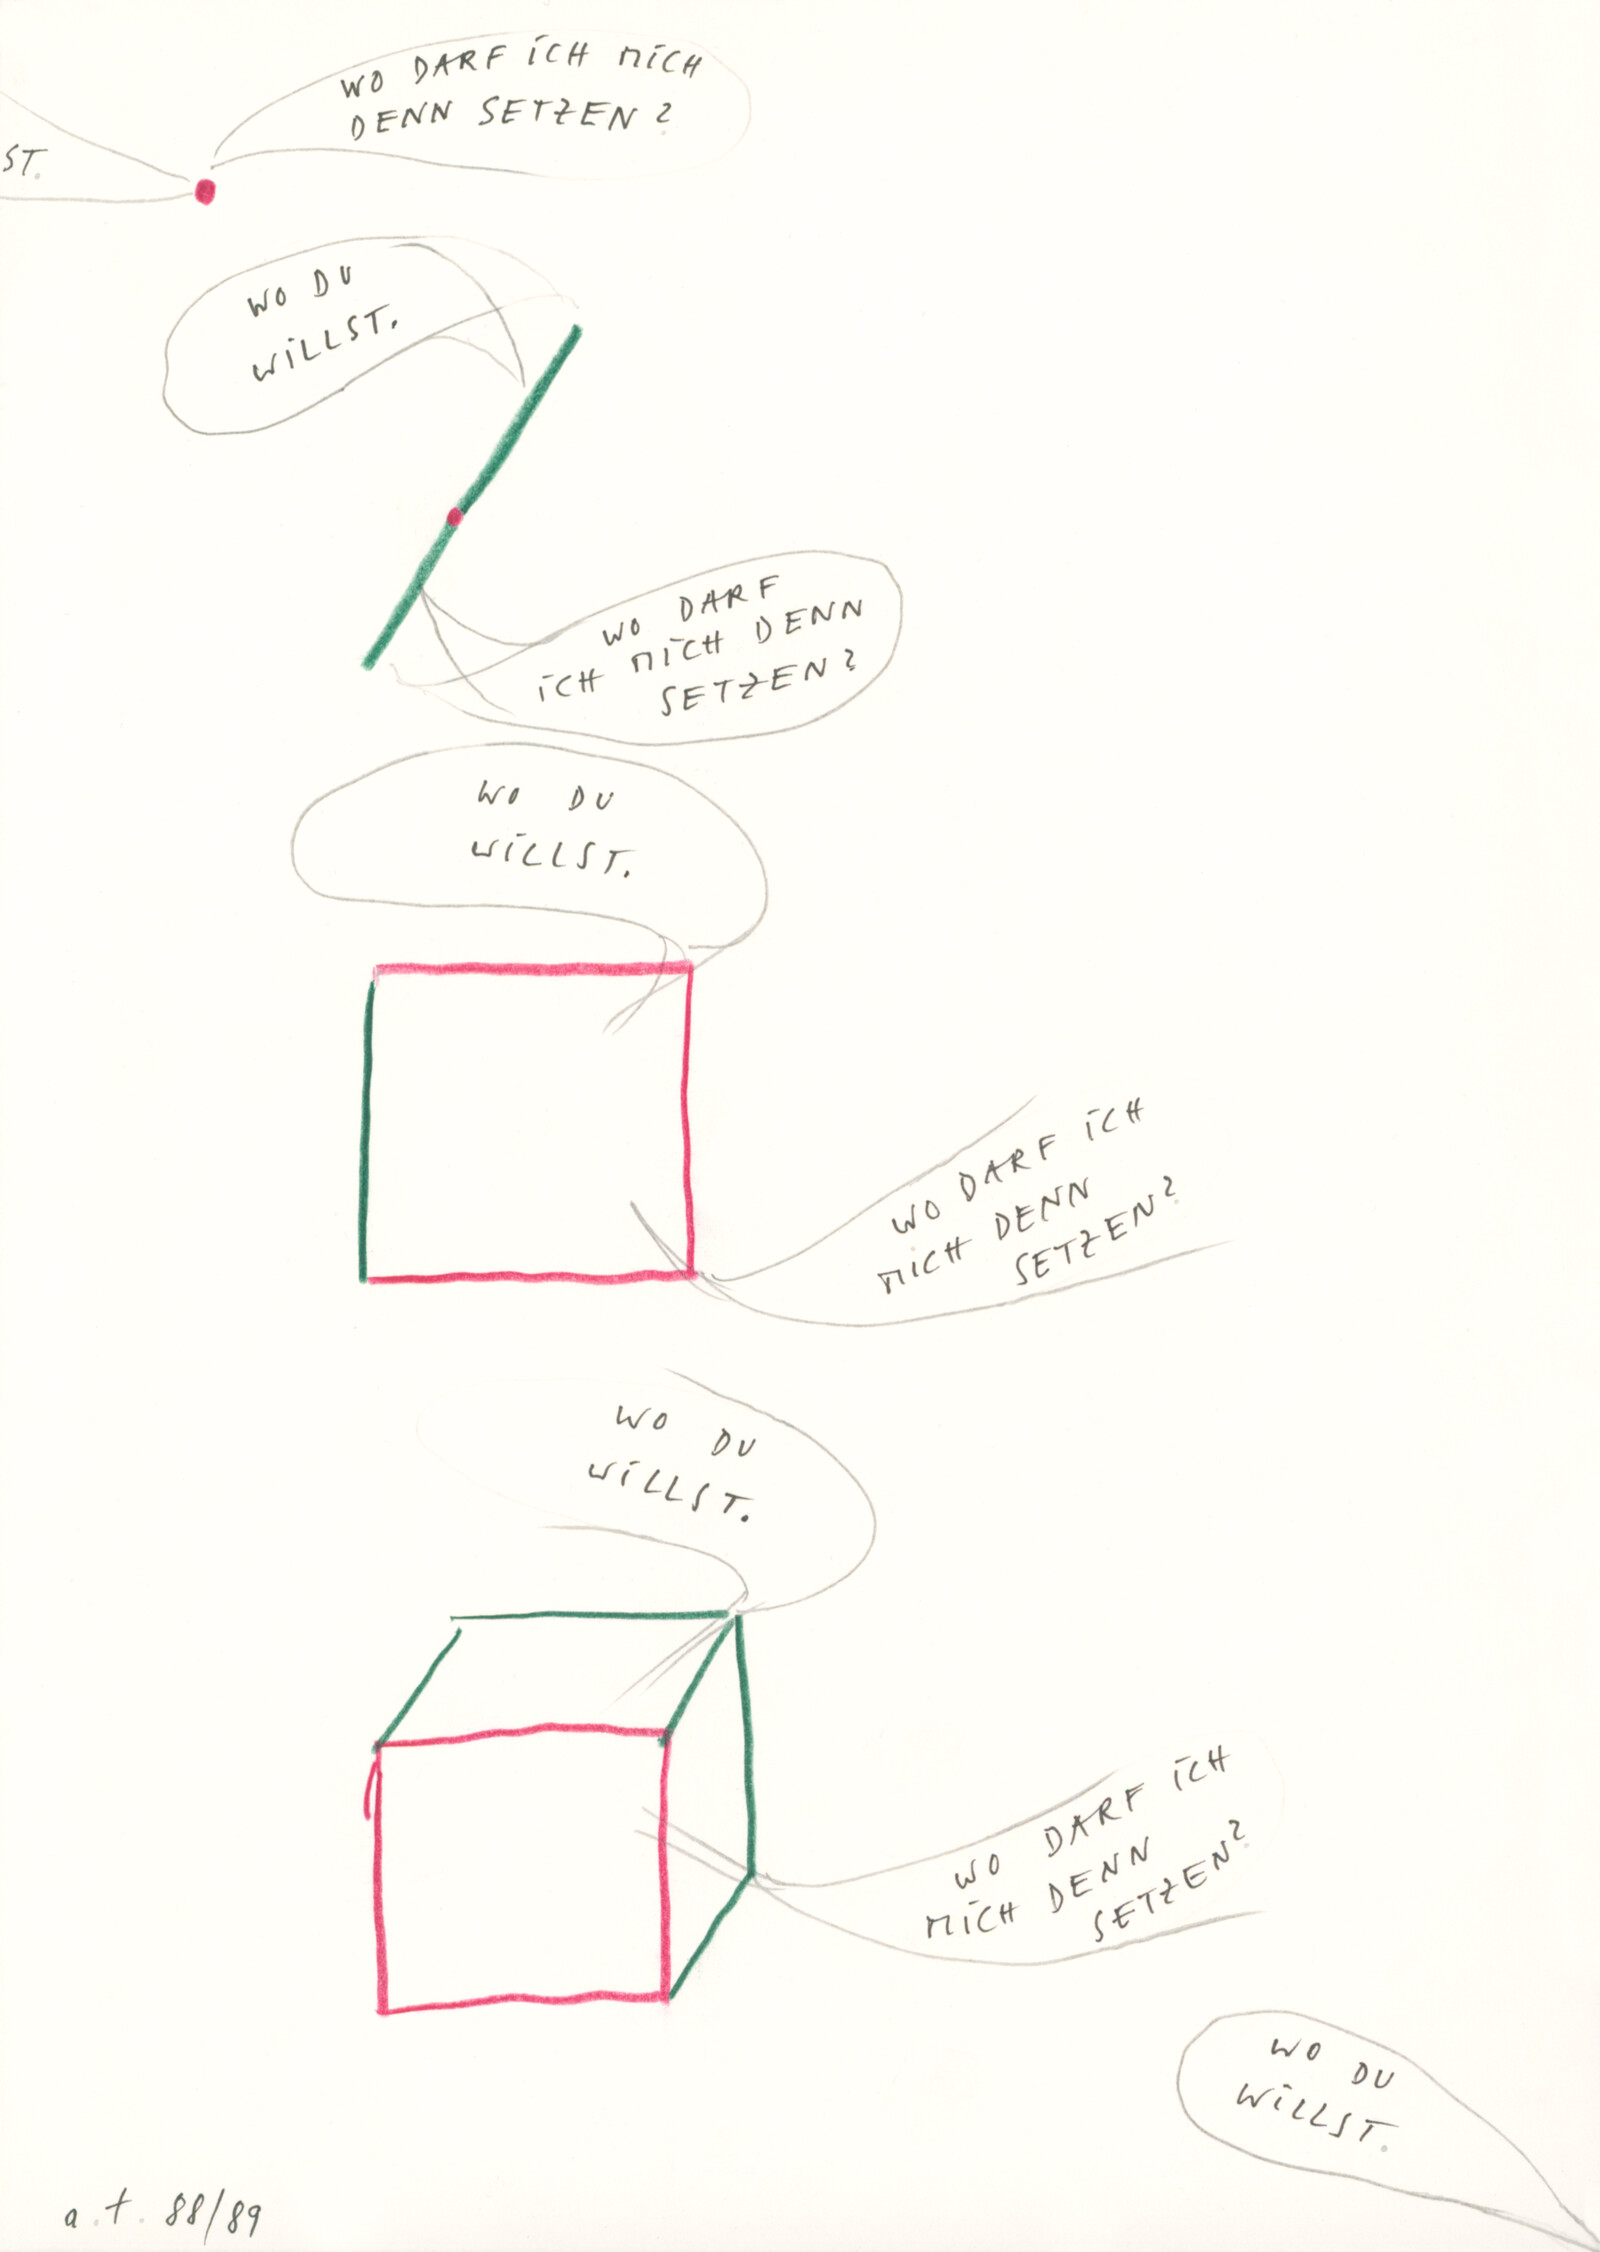 WO DARF ICH MICH
DENN SETZEN?
ST.
WO DU
WILLST.
WO DARF
ICH MICH DENN
SETZEN?
WO DU
WILLST.
WO DARF ICH
MICH DENN
SETZEN?
WO DU
WILLST.
WO DARF ICH
MICH DENN
SETZEN?
WO DU
WILLST.
a.t. 88/89